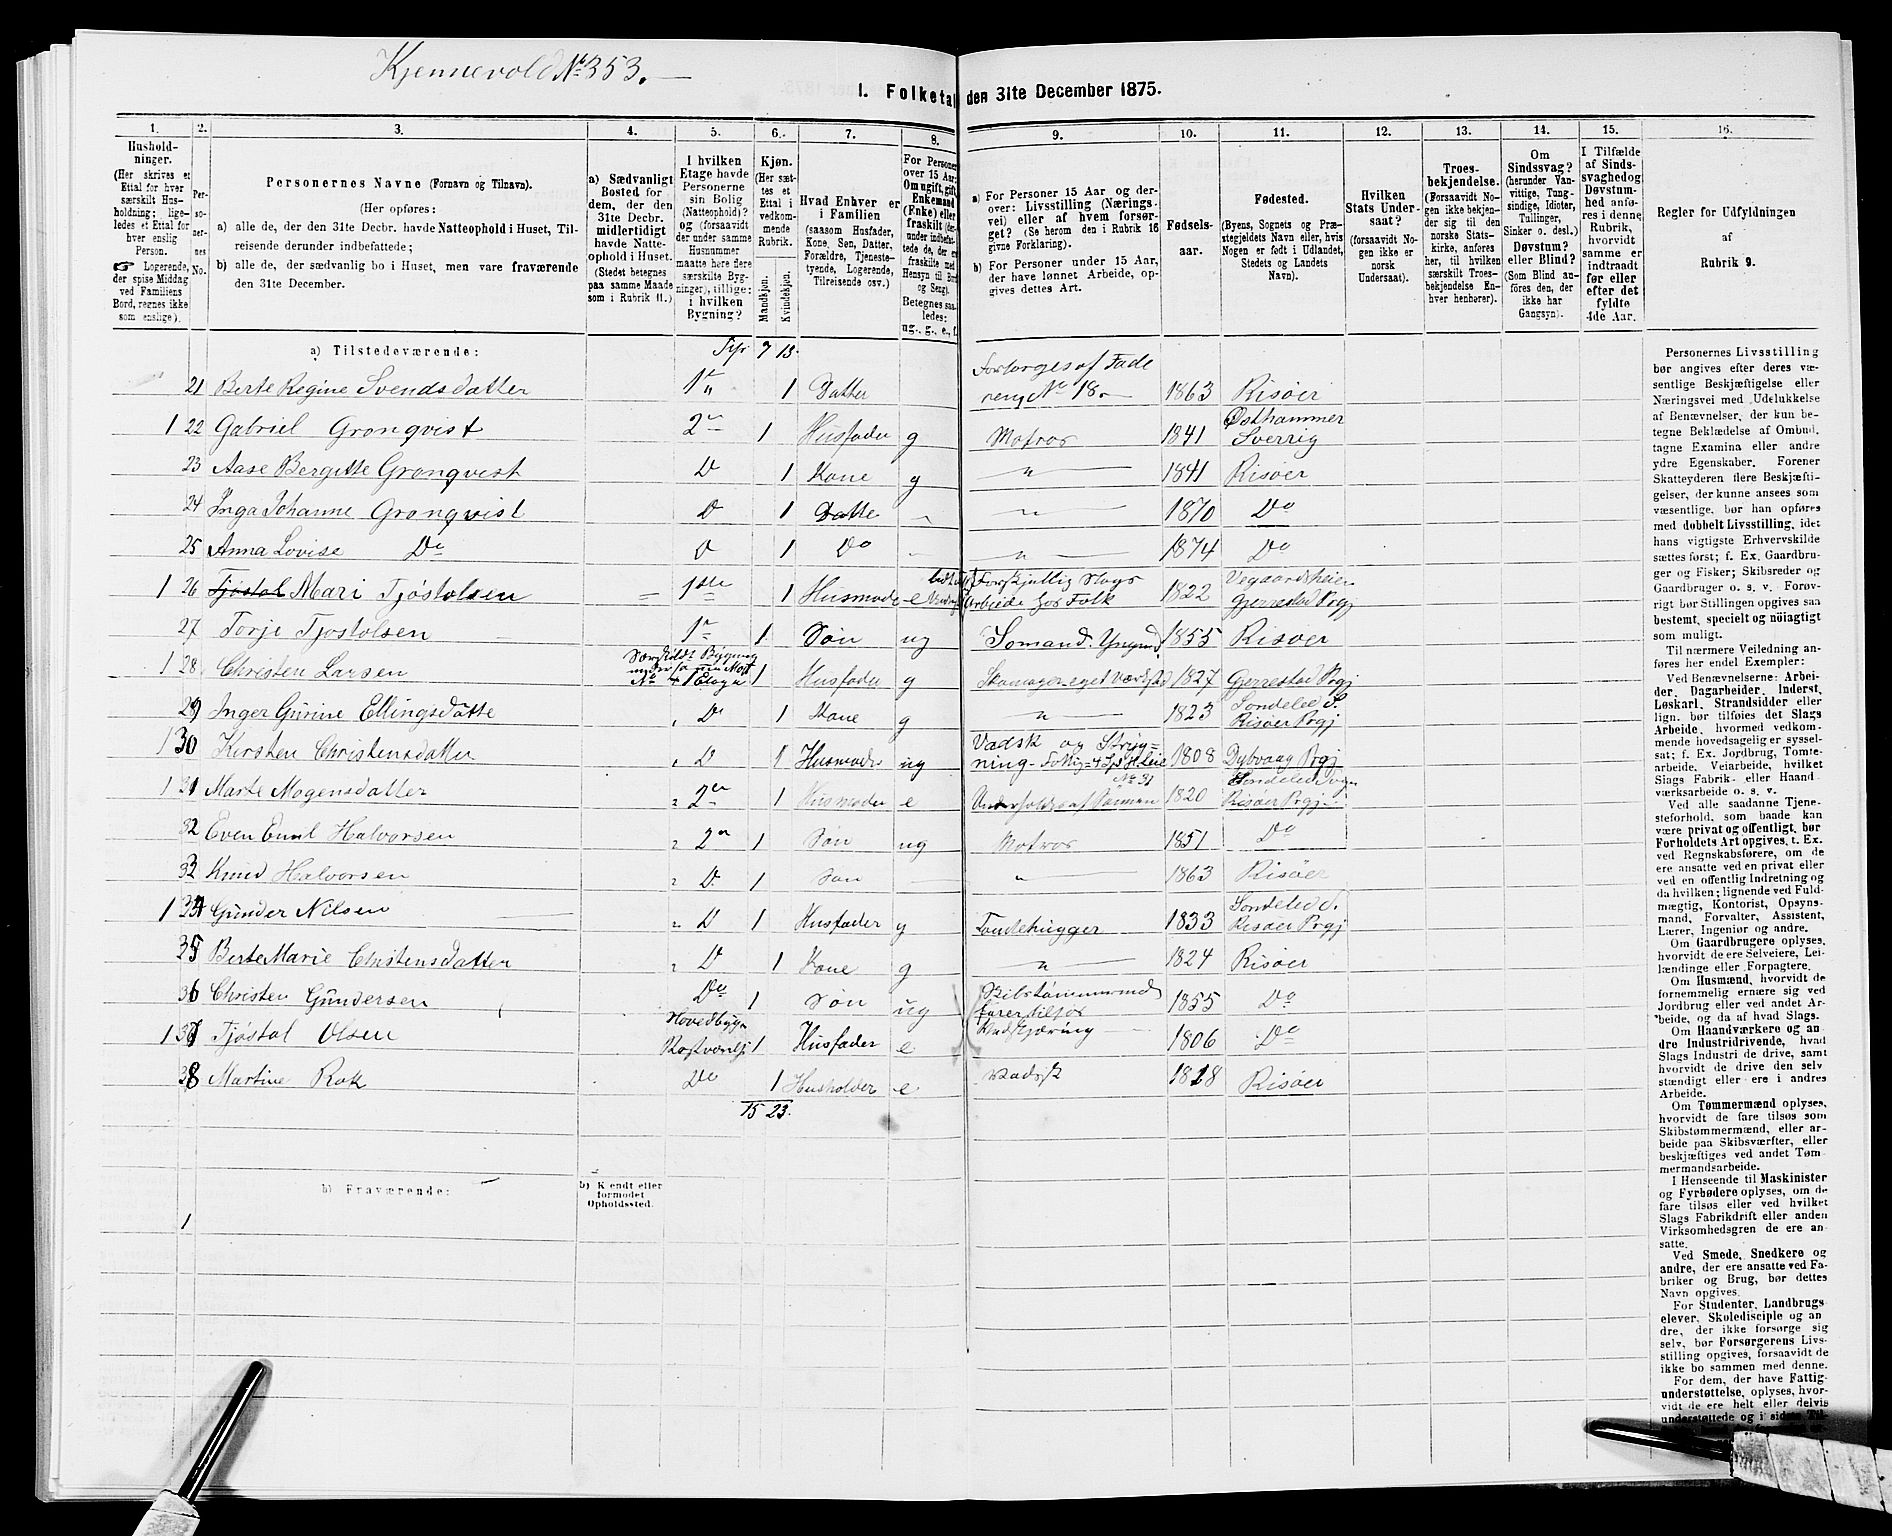 Kjennevold No 353.
I. Folketal den 31te December 1875.
1. 2. 3. 4. 5. 6. 7. 8. 9. 10. 11. 12. 13. 14. 15. 16.
Husholdninger. (Her skrives et Ettal for hver særskilt Husholdning; ligeledes et Ettal for hver enslig Person. Logerende, der spise Middag ved Familiens Bord, regnes ikke som enslige).
Personernes No.
Personernes Navne (Fornavn og Tilnavn).
(Her opføres:
a) alle de, der den 31te Decbr. havde Natteophold i Huset, Tilreisende derunder indbefattede;
b) alle de, der sædvanlig bo i Huset, men vare fraværende den 31te December.
a) Sædvanligt Bosted for dem, der den 31te Decbr. midlertidigt havde Natteophold i Huset. (Stedet betegnes paa samme Maade som i Rubrik 11.)
I hvilken Etage havde Personerne sin Bolig (Natteophold)? og (forsaavidt der under samme Husnummer maatte høre flere særskilte Bygninger), tillige: i hvilken Bygning?
Kjøn. (Her sættes et Ettal i vedkommende Rubrik.
Mandkjøn. Kvindekjøn.
Hvad Enhver er i Familien (saasom Husfader, Kone, Søn, Datter, Forældre, Tjenestetyende, Logerende, Tilreisende osv.)
For Personer over 15 Aar: Om ugift, gift, Enkemand (Enke) eller fraskilt
Betegnes saaledes: ug., g., e., f.
a) For Personer 15 Aar og derover: Livsstilling (Næringsvei) eller af hvem forsørget? (Se herom den i Rubrik 16 givne Forklaring).
b) For Personer under 15 Aar, der have lønnet Arbeide, opgives dettes Art.
Fødselsaar.
Fødested. (Byens, Sognets og Præstegjeldets Navn eller, hvis Nogen er født i Udlandet, Stedets og Landets Navn).
Hvilken Stats Undersaat? (forsaavidt Nogen ikke er norsk Undersaat).
Troesbekjendelse. (Forsaavidt Nogen ikke bekjender sig til den norske Statskirke, anføres her, til hvilken særskilt Troesbekjendelse Enhver henhører).
Om Sindssvag? (herunder Vanvittige, Tungsindige, Idioter, Tullinger, Sinker o. desl.) Døvstum? eller Blind? (Som Blind anføres den, der ikke har Gangsyn).
I Tilfælde af Sindssvaghed og Døvstumhed anføres i denne Rubrik, hvorvidt samme er indtraadt før eller efter det fyldte 4de Aar.
Regler for Udfyldningen af Rubrik 9.
a) Tilstedeværende: 7 13
21 Berte Regine Svendsdatter 1 Datter Forsørges af Faderen No 18 1863 Risøer
1 22 Gabriel Gronqvist 2 1 Husfader g Matros 1841 Østhammer Sverrig
23 Aase Bergitte Gronqvist Do 1 Kone g " 1841 Risøer
24 Inga Johanne Gronqvist Do 1 Datte " 1870 Do
25 Anna Lovise Do Do 1 Do " 1874 Do
1 26 Tjøstol Mari Tjøstolsen 1ste 1 Husmoder e Forskjellig Slags Arbeide hos Folk 1822 Vegaardsheien Gjerrestad Prgj
27 Torje Tjostolsen 1 1 Søn ug Sømand 1855 Risøer
1 28 Christen Larsen No 4 1 Etage 1 Husfader g Skomager eget Værksted 1827 Gjerrestad Prgj
29 Inger Gurine Ellingsdatte Do 1 Kone g " 1823 Sondeled S. Risøer Prgj
1 30 Kirsten Christensdatter Do 1 Husmoder ug Vadsk og Strygning 1808 Dybvaag Prgj
1 31 Marte Mogensdatter 2 1 Husmoder e Underholdes af Sønnen 1820 Søndeled Sogn Risøer Prgj
32 Even Emil Halvorsen 2 1 Søn ug Matros 1851 Do
33 Knud Halvorsen Do 1 Søn " 1863 Risøer
1 34 Gunder Nilsen Do 1 Husfader g Tøndehugger 1833 Sondeled S. Risøer Prgj
35 Berte Marie Christensdatter Do 1 Kone g " 1824 Risøer
36 Christen Gundersen Do 1 Søn ug Skibstømmermand farer tilsøs 1855 Do
1 37 Tjøstol Olsen Hovedbygn 1 Husfader e 1806 Do
38 Martine Rok Do 1 Husholder e Vadsk 1818 Risøer
15 23.
b) Fraværende: b) Kjendt eller formodet Opholdssted.
1
Personernes Livsstilling bør angives efter deres væsentlige Beskjæftigelse eller Næringsvei med Udelukkelse af Benævnelser, der kun betegne Beklædelse af Ombud, tagne Examina eller andre ydre Egenskaber. Forener Skatteyderen flere Beskjæftigelser, der kunne ansees som væsentlige, bør han opføres med dobbelt Livsstilling, idet hans vigtigste Erhvervskilde sættes først; f. Ex. Gaardbruger og Fisker; Skibsreder og Gaardbruger o. s. v. Forøvrigt bør Stillingen opgives saa bestemt, specielt og nøiagtigt som muligt.
Til nærmere Veiledning anføres her endel Exempler:
Ved Benævnelserne: Arbeider, Dagarbeider, Inderst, Løskarl, Strandsidder eller lign. bør tilføies det Slags Arbeide, hvormed vedkommende hovedsagelig er sysselsat; f. Ex. Jordbrug, Tomtearbeide, Veiarbeide, hvilket Slags Fabrik- eller Haandværksarbeide o. s. v.
Ved alle saadanne Tjenesteforhold, som baade kan være privat og offentligt, bør Forholdets Art opgives, t. Ex. ved Regnskabsførere, om de ere ansatte ved en privat eller ved en offentlig Indretning og da hvilken; lignende ved Fuldmægtig, Kontorist, Opsynsmand, Forvalter, Assistent, Lærer, Ingeniør og andre.
Om Gaardbrugere oplyses, hvorvidt de ere Selveiere, Leilændinge eller Forpagtere.
Om Husmænd, hvorvidt de fornemmelig ernære sig ved Jordbrug eller ved andet Arbeide, og da af hvad Slags.
Om Haandværkere og andre Industridrivende, hvad Slags Industri de drive, samt hvorvidt de drive den selvstændigt eller ere i andres Arbeide.
Om Tømmermænd oplyses, hvorvidt de fare tilsøs som Skibstømmermænd, eller arbeide paa Skibsværfter, eller beskjæftiges ved andet Tømmermandsarbeide.
I Henseende til Maskinister og Fyrbødere oplyses, om de fare tilsøs eller ved hvilket Slags Fabrikdrift eller anden Virksomhedsgren de ere ansatte.
Ved Smede, Snedkere og andre, der ere ansatte ved Fabriker og Brug, bør dettes Navn opgives.
For Studenter, Landbrugselever, Skoledisciple og andre, der ikke forsørge sig selv, bør Forsørgerens Livsstilling opgives, forsaavidt de ikke bo sammen med denne.
For dem, der have Fattigunderstøttelse, oplyses, hvorvidt de ere helt eller delvis understøttede og i sidste